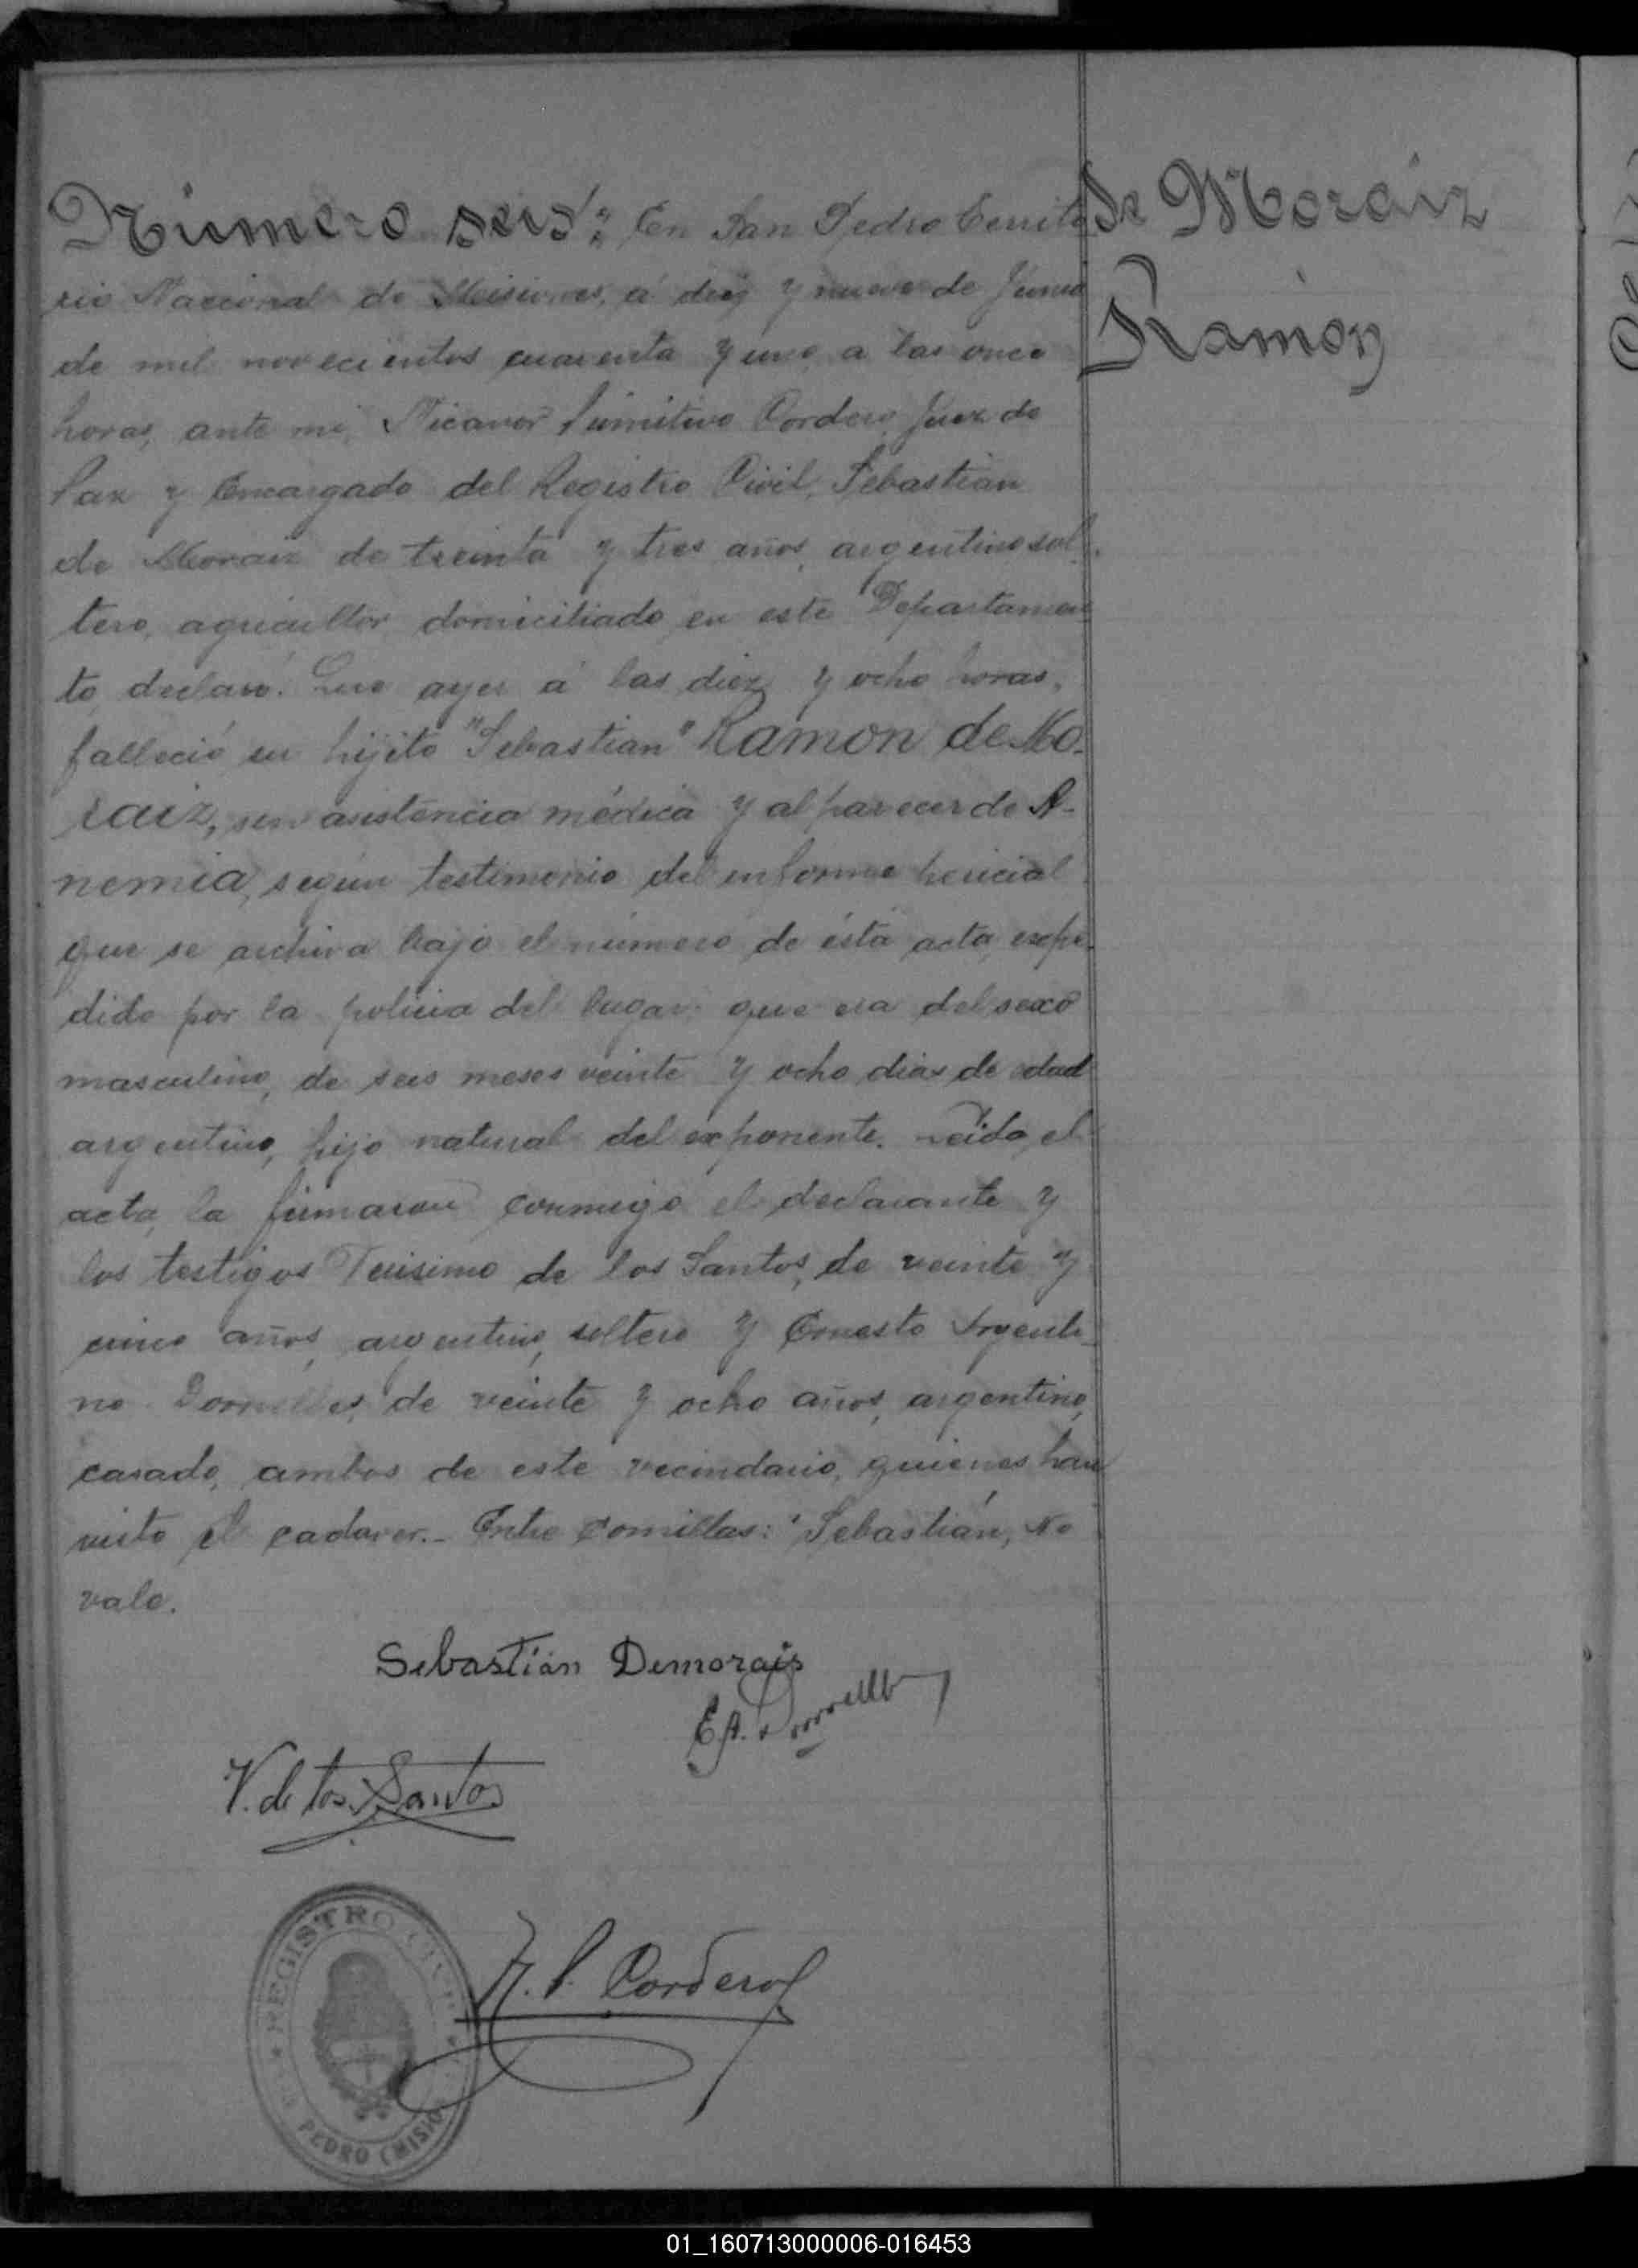 Número seis: En San Pedro Territo
rio Nacional de Misiones, á diez y nueve de Junio
de mil novecientos cuarenta y uno, a las once
horas, ante mi, Nicanor Primitivo Cordero, Juez de
Paz y Encargado del Registro Civil, Sebastián
de Moraiz de treinta y tres años, argentino sol-
tero, agricultor domiciliado en este Departamen
to declaró: Que ayer á las diez y ocho horas,
falleció su hijito "Sebastian" Ramon de Mo-
raiz, sin asistencia médica y al parecer de A-
nemia, según testimonio del informe pericial
que se archiva bajo el número de ésta acta, expe-
dido por la policia del lugar; que era del sexo
masculino, de seis meses veinte y ocho dias de edad
argentino, hijo natural del exponente. Leido, el
acta, la firmaron conmigo el declarante y
los testigos de los Santos, de veinte y
cinco años, argentino, soltero y Ernesto Argenti-
no de veinte y ocho años, argentino,
casado, ambos de este vecindario, quienes han
visto el cadaver.- Entre comillas: "Sebastián, No
vale.
Sebastián Demorais
E.A.
V. de los Santos
N. P. Cordero
REGISTRO CIVIL
PEDRO (MISIO
de Moraiz
Ramón
01_160713000006-016453